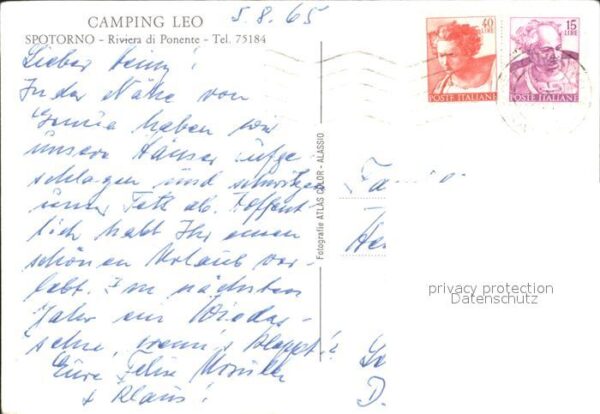 CAMPING LEO
SPOTORNO - Riviera di Ponente - Tel. 75184
5.8.65
Lieber
In der Nähe von
Genua haben wir
unsere Häuser aufge
schlagen und schwitzen
unser Fett ab. Hoffent
lich habt Ihr einen
schönen Urlaub ver
lebt. Im nächsten
Jahr ein Wieder
sehn, wenn's klappt!
Eure Felix
+ Klaus!
Fotografie ATLAS COLOR - ALASSIO
40
LIRE
POSTE ITALIANE
15
LIRE
POSTE ITALIANE
Fa
He
D.
privacy protection
Datenschutz